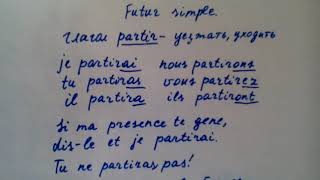 Futur simple.
глагол partir - уезжать, уходить
je partirai nous partirons
tu partiras vous partirez
il partira ils partiront
Si ma presence te gene,
dis-le et je partirai.
Tu ne partiras pas!